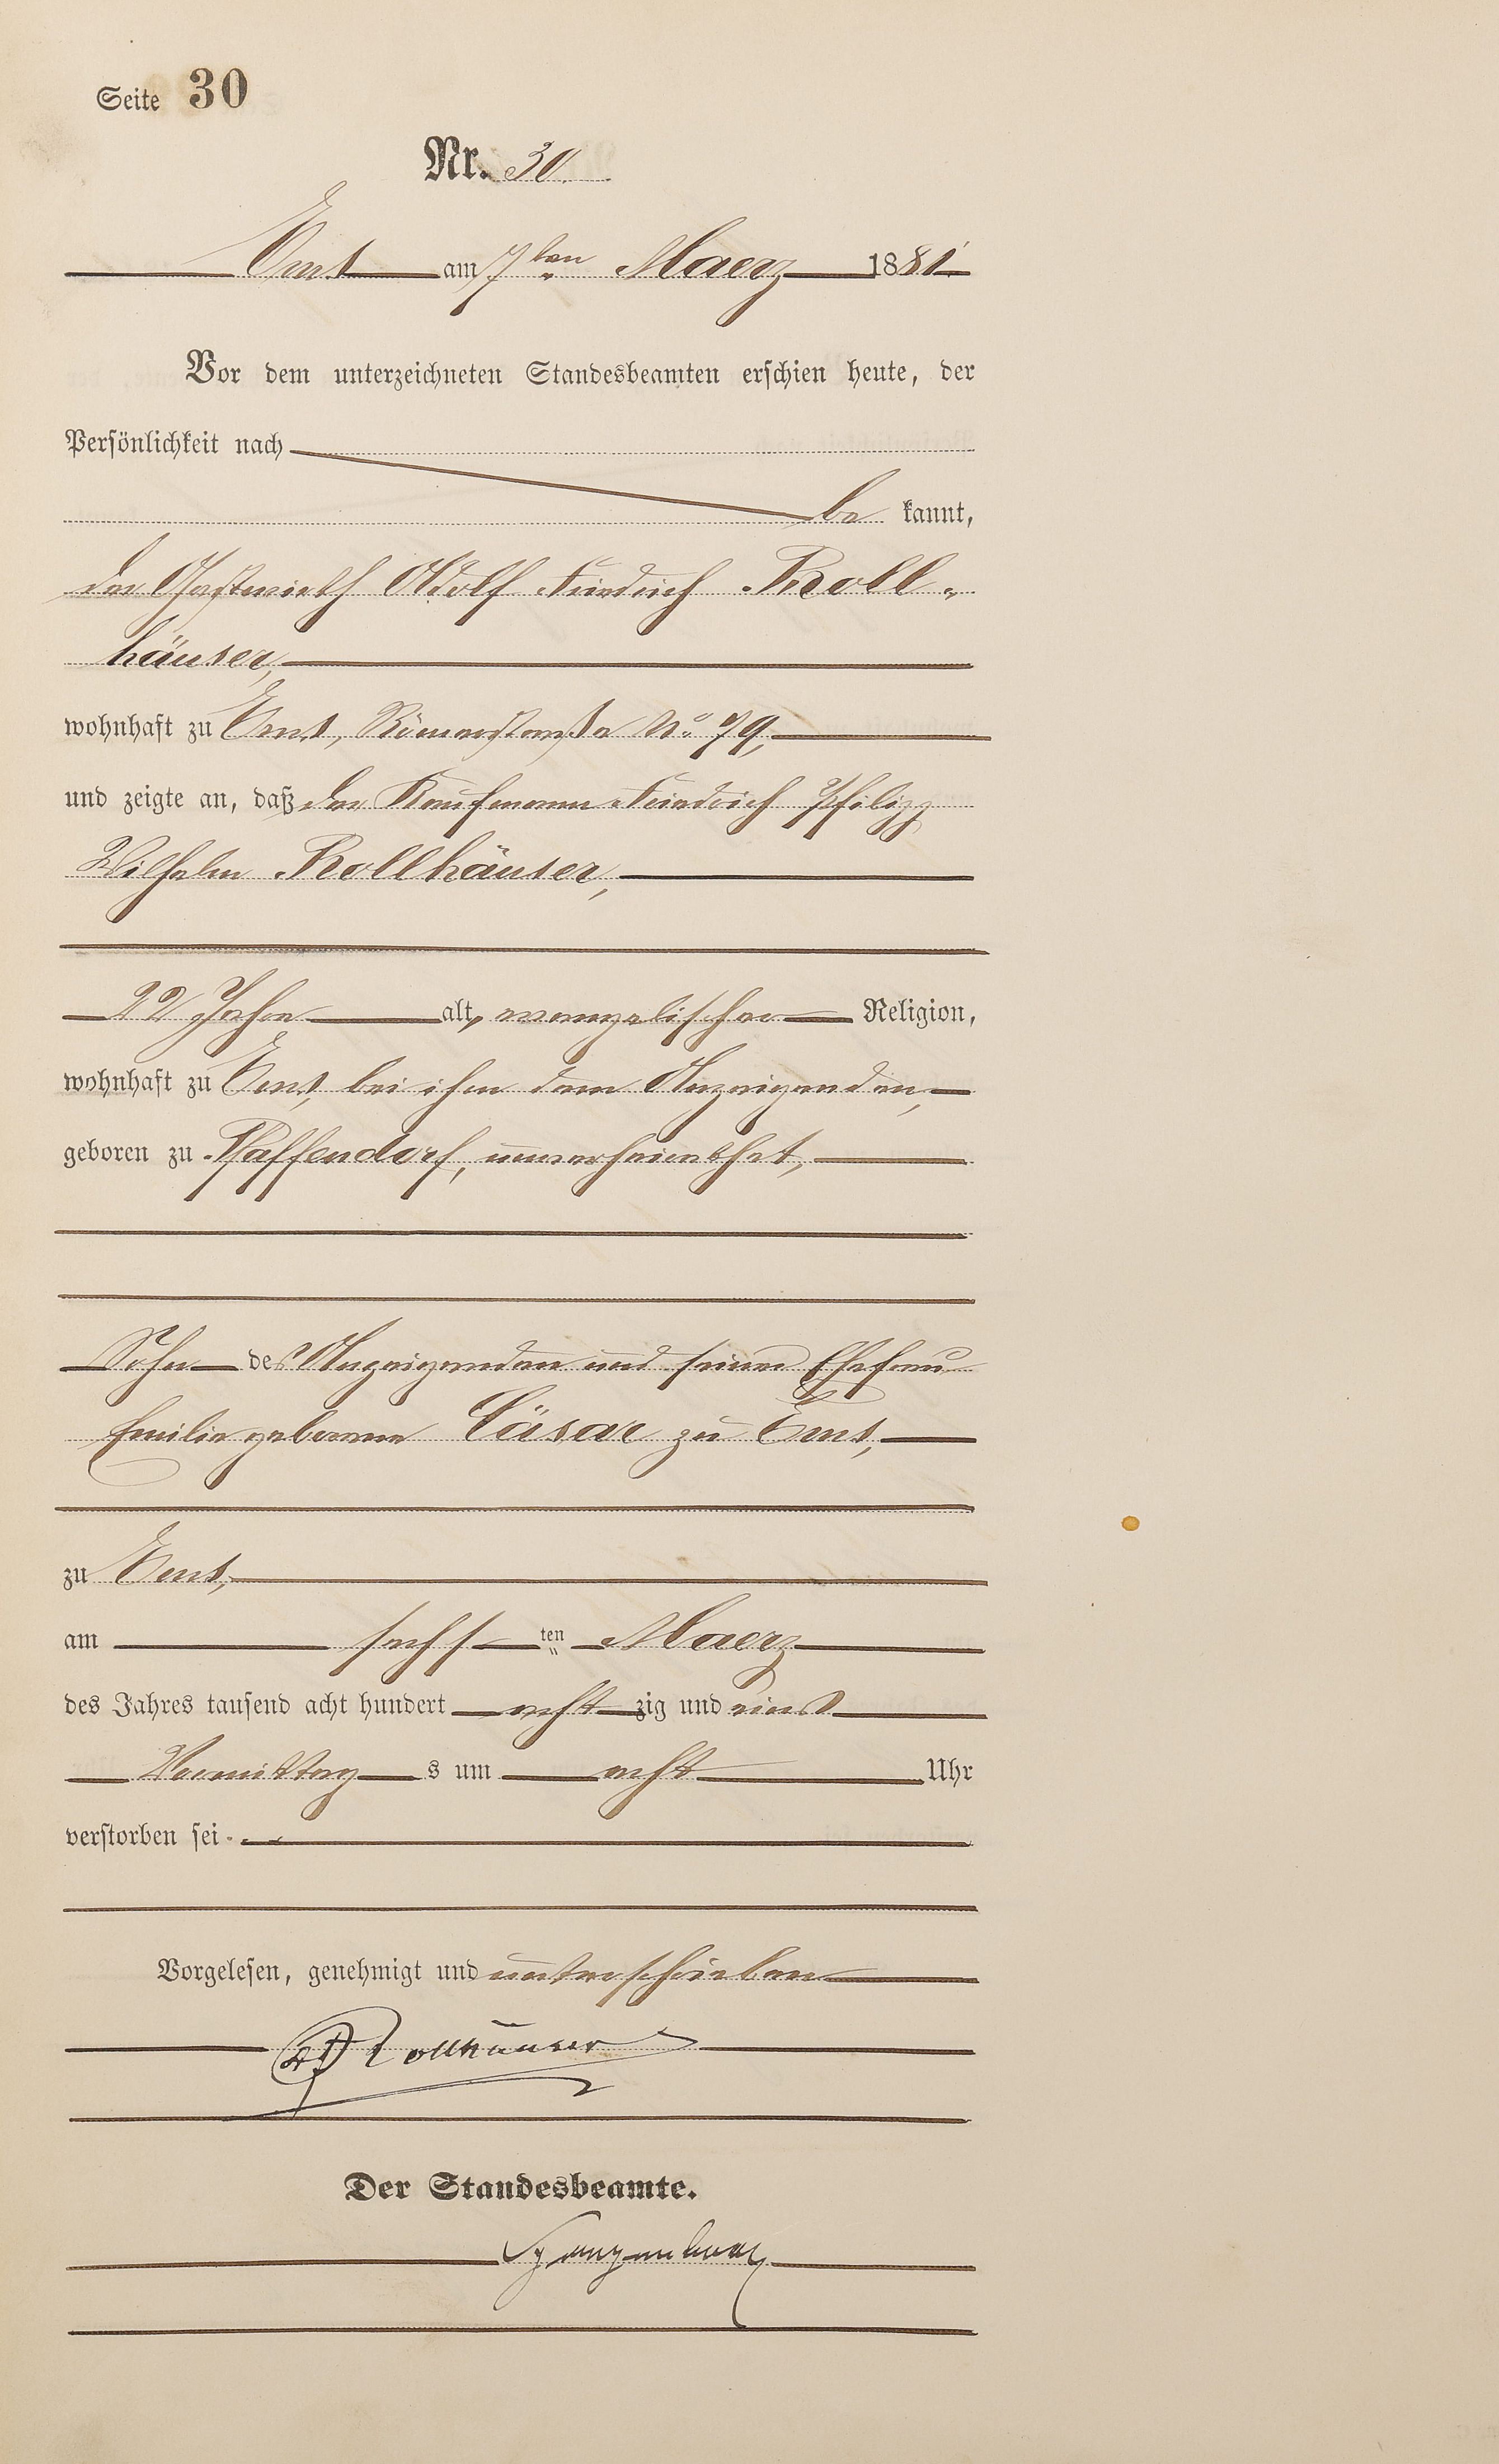 Seite 30
Nr. 30.
Ems am 7ten Maerz 1881.
Vor dem unterzeichneten Standesbeamten erschien heute, der
Persönlichkeit nach
be kannt,
der Gastwirth Adolf Friedrich Roll-
häuser,
wohnhaft zu Ems, Römerstraße No 79,
und zeigte an, daß der Kaufmann Friedrich Philipp
Wilhelm Rollhäuser,
22 Jahre alt, evangelischer Religion,
wohnhaft zu Ems, bei ihm dem Anzeigenden,
geboren zu Pfaffendorf, unverheirathet,
Sohn des Anzeigenden und seiner Ehefrau
Emilie geborene Cäsar zu Ems,
zu Ems,
am sechsten Maerz
des Jahres tausend acht hundert acht zig und eins
Vormittag s um acht Uhr
verstorben sei.
Vorgelesen, genehmigt und unterschrieben
Rollhäuser
Der Standesbeamte.